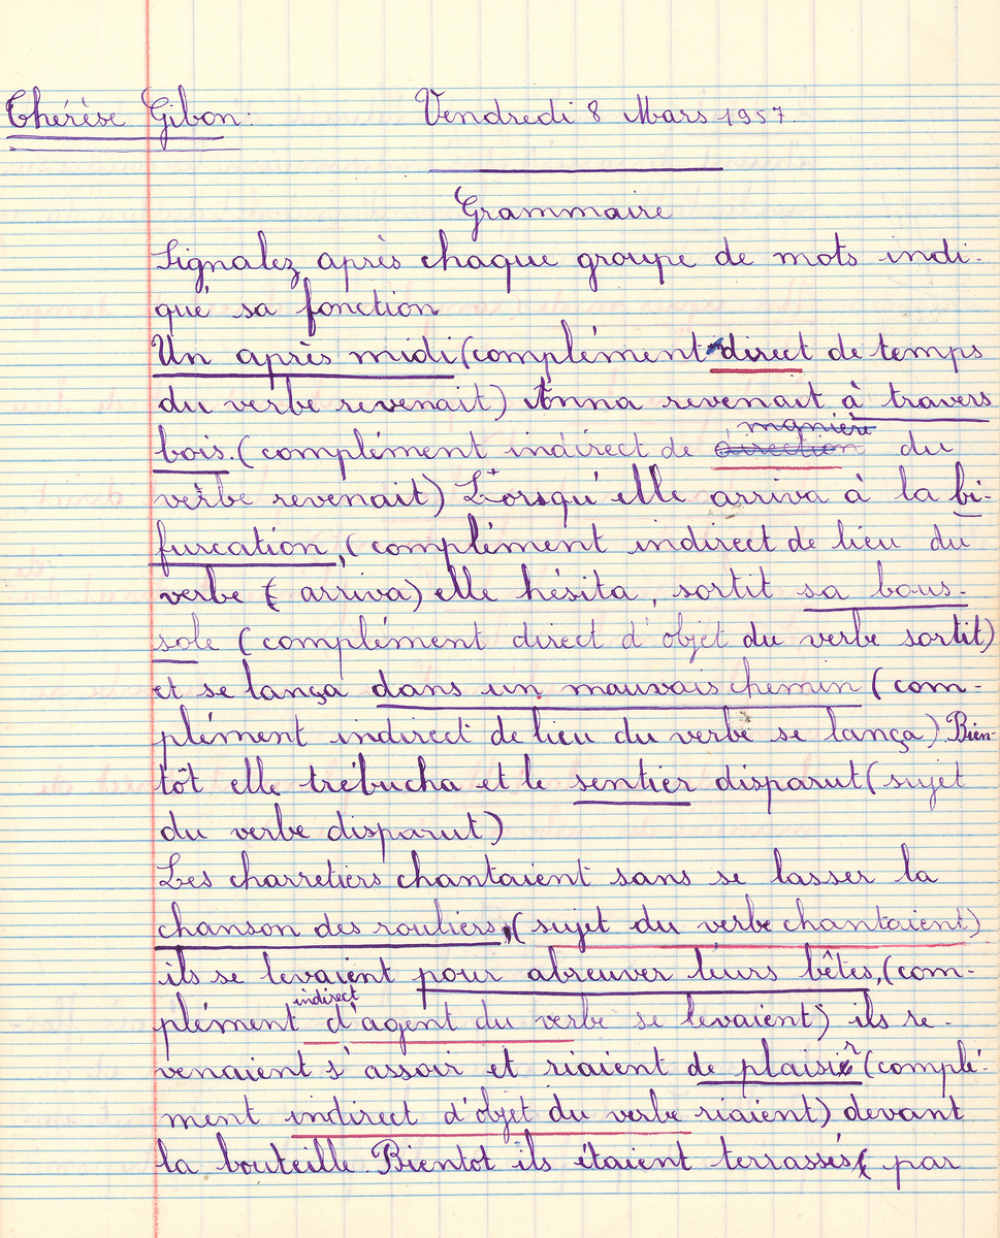 Thérèse Gibon: Vendredi 8 Mars 1957.
Grammaire
Signalez après chaque groupe de mots indi-
qué sa fonction
Un après midi (complément direct de temps
du verbe revenait) Anna revenait à travers
manière
bois. (complément indirect de direction du
verbe revenait) Lorsqu'elle arriva à la bi-
furcation, (complément indirect de lieu du
verbe (arriva) elle hésita, sortit sa bous-
sole (complément direct d'objet du verbe sortit)
et se lança dans un mauvais chemin (com-
plément indirect de lieu du verbe se lança). Bien-
tôt elle trébucha et le sentier disparut (sujet
du verbe disparut)
Les charretiers chantaient sans se lasser la
chanson des rouliers, (sujet du verbe chantaient)
ils se levaient pour abreuver leurs bêtes, (com-
indirect
plément d'agent du verbe se levaient) ils re-
venaient s'assoir et riaient de plaisir (complé-
ment indirect d'objet du verbe riaient) devant
la bouteille. Bientot ils étaient terrassés ( par